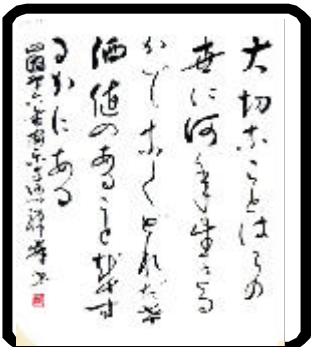 大切なことはこの
世に何年生きる
かでなくどれだけ
価値のあることをす
るかにある